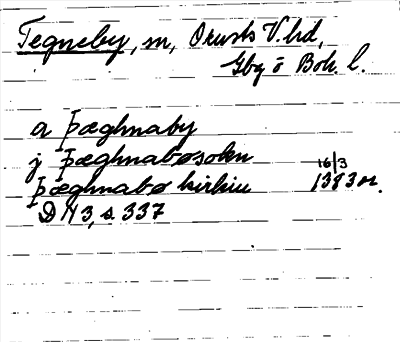 Tegneby, sn, Orusts V. hd,
Gbg o Boh. l.
a þæghnaby
j þæghnabøsokn
16/3
þæghnabø kirkiu 1383 or.
DN 3, s. 337